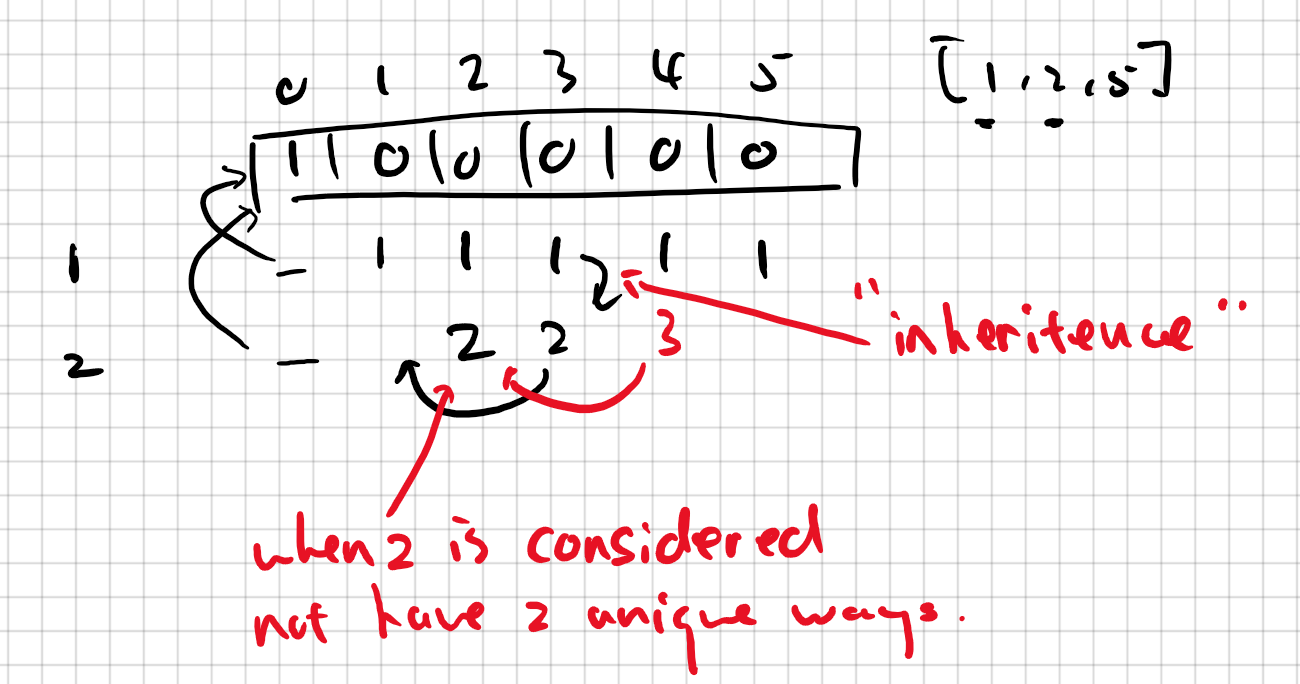 0 1 2 3 4 5 [1,2,5]
1 | 0 | 0 | 0 | 0 | 0
1 – 1 1 1 1 1
"inheritence"
2 – 2 2 3
when 2 is considered
not have 2 unique ways.